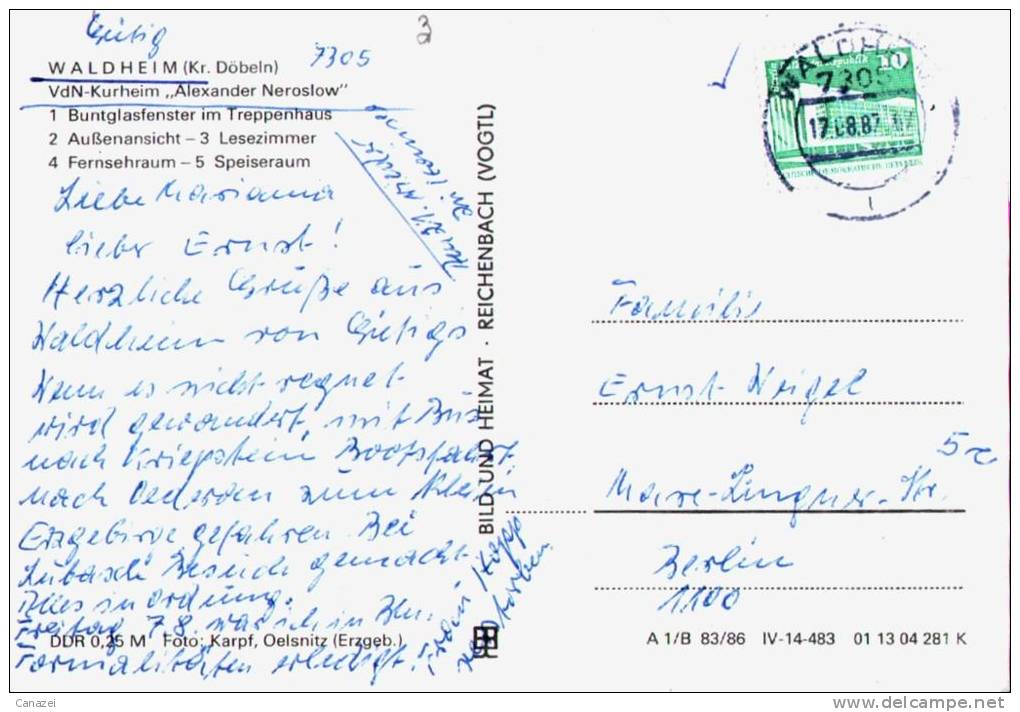 Gütig
7305
3
WALDHEIM (Kr. Döbeln)
VdN-Kurheim „Alexander Neroslow"
1 Buntglasfenster im Treppenhaus
2 Außenansicht – 3 Lesezimmer
4 Fernsehraum – 5 Speiseraum
Liebe Mariana
lieber Ernst!
Herzliche Grüße aus
Waldheim von Gütigs
Wenn es nicht regnet
wird gewandert, mit Bus
nach Kriepstein Bootsfahrt,
nach Oederan zum Klein
Erzgebirge gefahren. Bei
Lubasch Besuch gemacht
Alles in Ordnung.
Freitag 7.8. war ich in Bln.
Formalitäten erledigt!
Frau Kopp
verstorben
DDR 0,25 M Foto: Karpf, Oelsnitz (Erzgeb.)
BILD UND HEIMAT · REICHENBACH (VOGTL)
WALDH
7305
17.08.87
10
DEUTSCHE DEMOKRATISCHE REPUBLIK
Familie
Ernst Weigel
5
Berlin
1100
A 1/B 83/86 IV-14-483 01 13 04 281 K
Canazei
delcampe.net